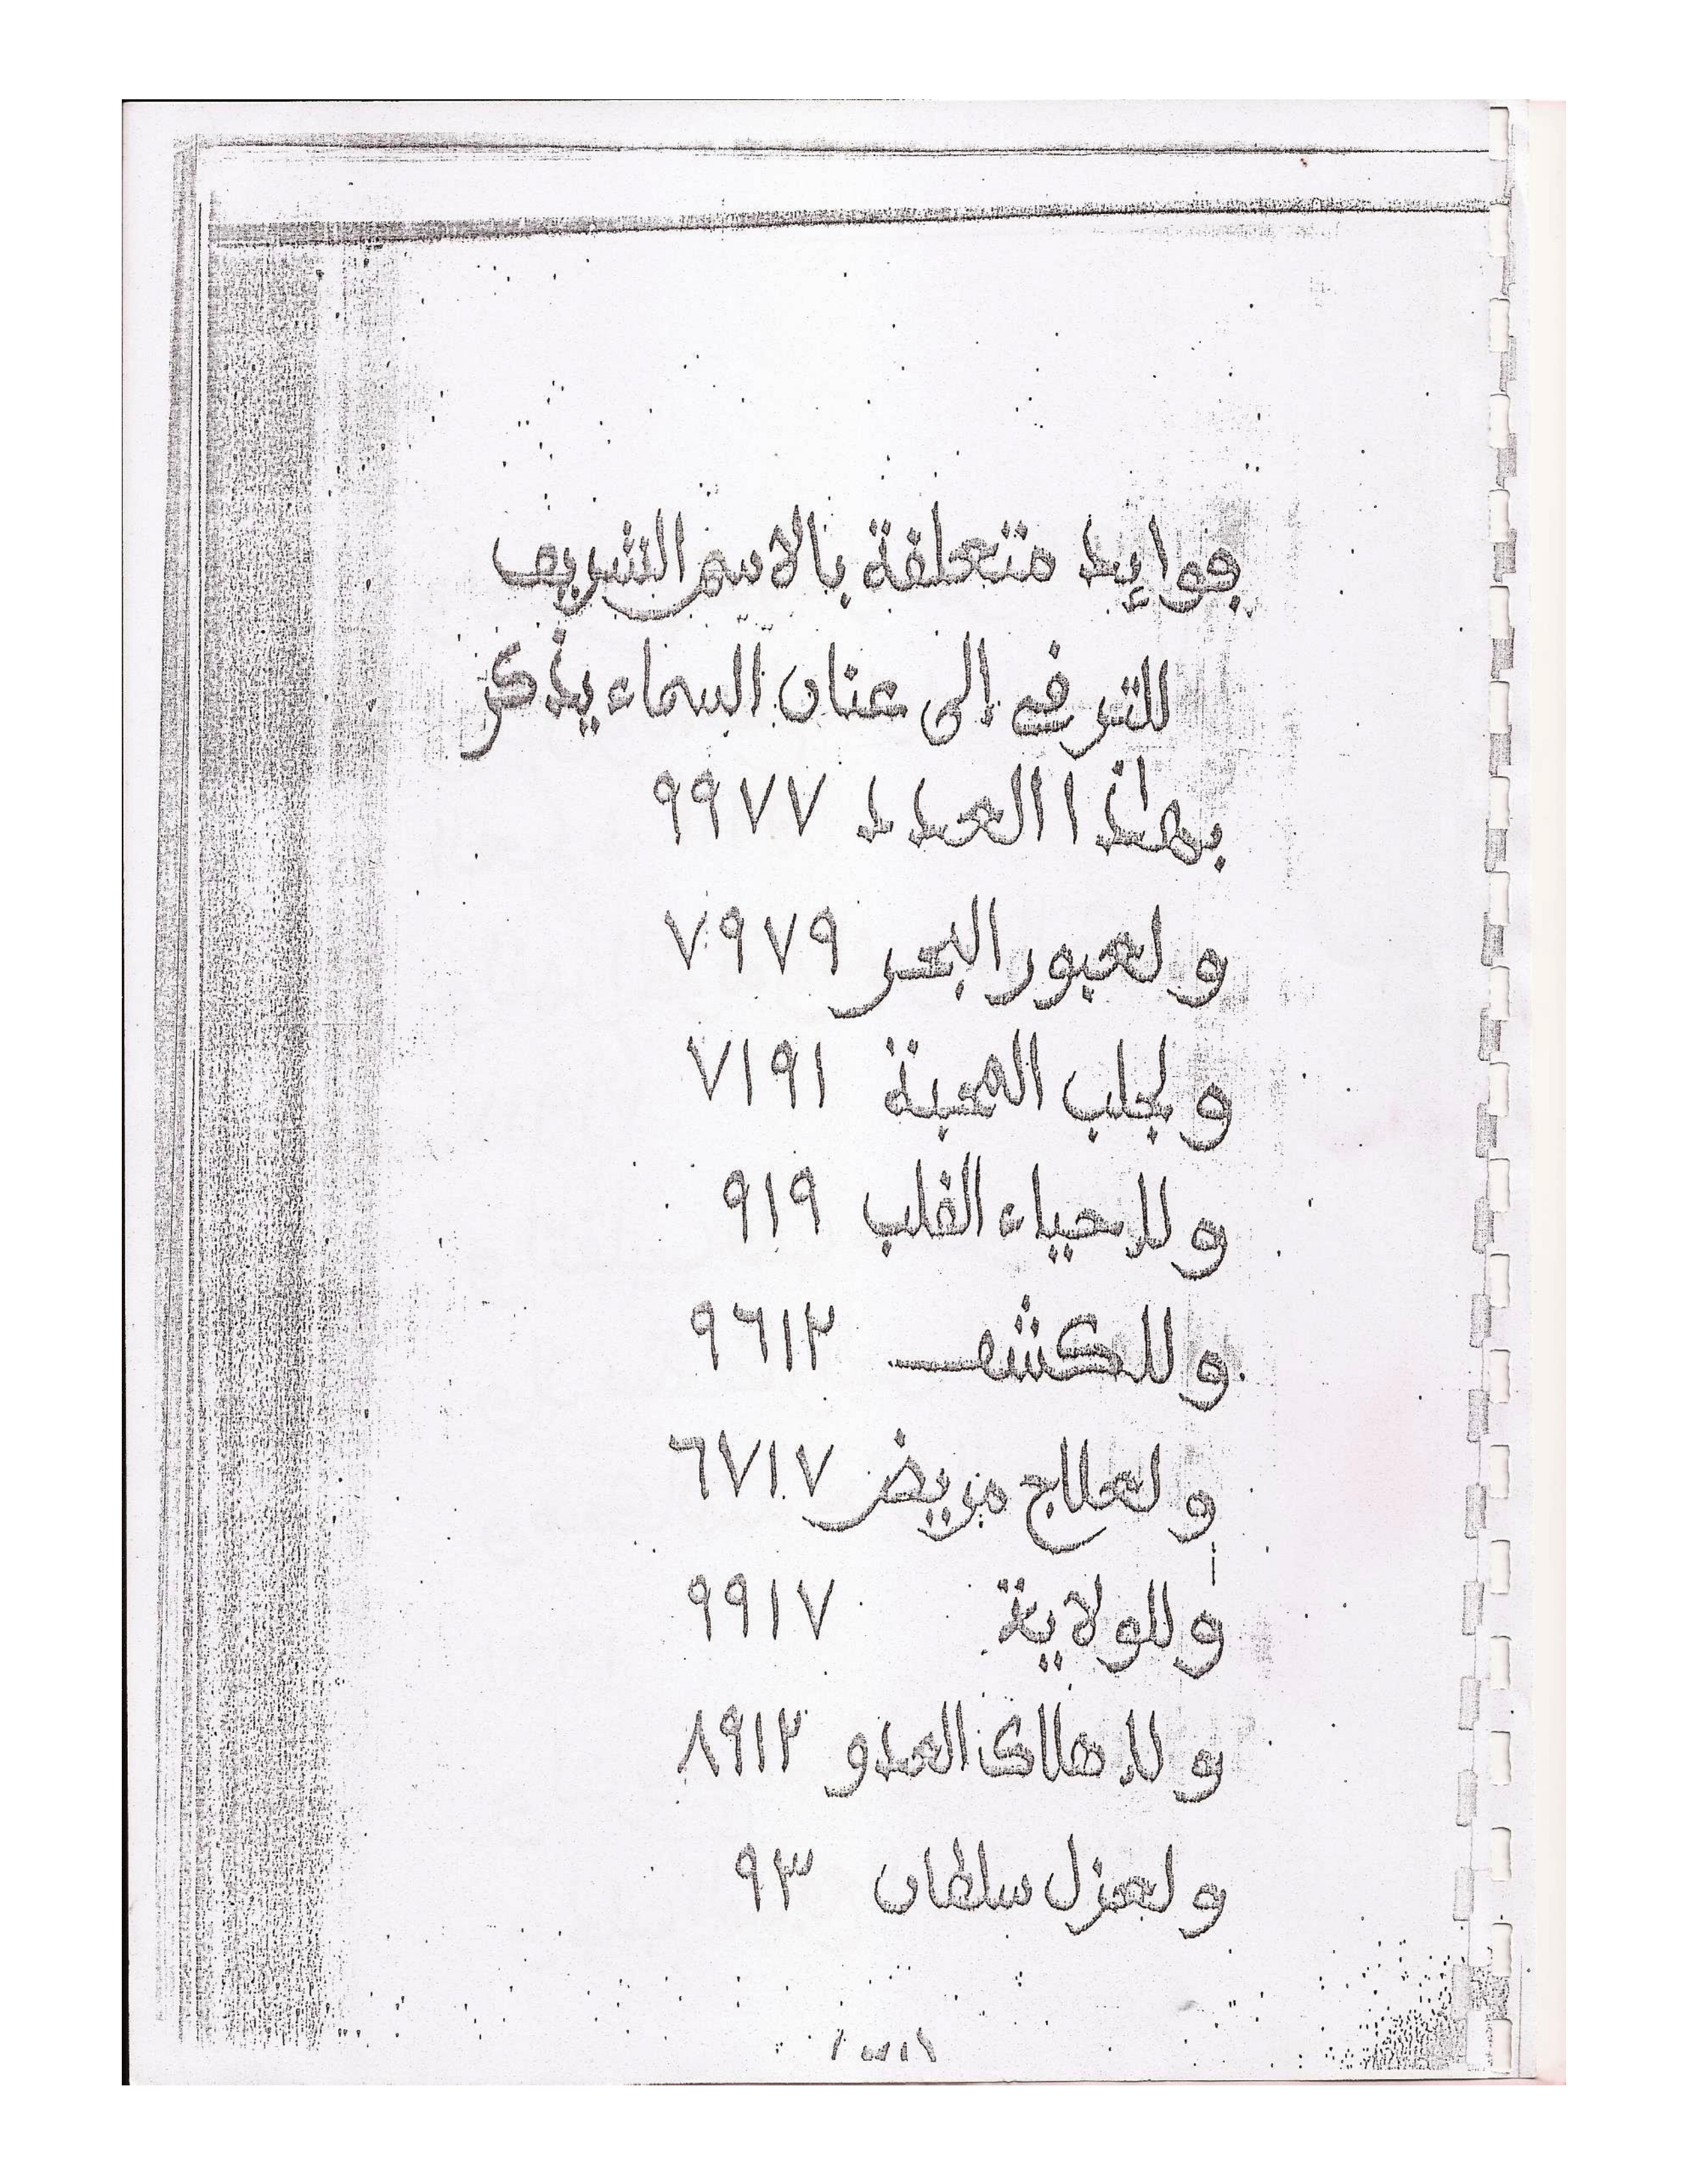 فوايد متعلقة بالاسم الشريف
للترقي الى عنان السماء يذكر
بهذا العدد ٩٩٧٧
و لعبور البحر ٧٩٧٩
و لجلب المحبة ٧١٩١
و للاحياء القلب ٩١٩
و للكشف ٩٦١٢
و لعلاج مريض ٦٧١٧
و للولاية ٩٩١٧
و للاهلاك العدو ٨٩١٢
و لعزل سلطان ٩٣